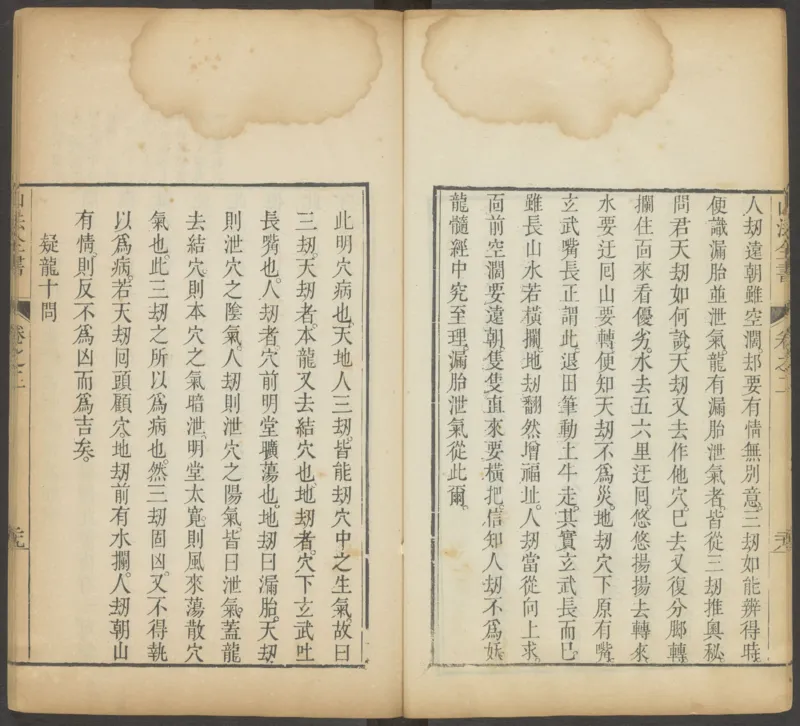 人刼遠朝雖空濶却要有情無別意三刼如能辨得時
便識漏胎並泄氣龍有漏胎泄氣者皆從三刼推奥秘
問君天刼如何說天刼又去作他穴巳去又復分脚轉
攔住面來看優劣水去五六里迂囘悠悠揚揚去轉來
水要迂囘山要轉便知天刼不爲災地刼穴下原有嘴
玄武嘴長正謂此退田筆動土牛走其實玄武長而巳
雖長山水若橫攔地刼翻然增福址人刼當從向上求
面前空濶要遠朝隻隻直來要橫把信知人刼不爲妖
龍髓經中究至理漏胎泄氣從此爾
山法全書
卷之二
此明穴病也天地人三刼皆能刼穴中之生氣故曰
三刼天刼者本龍又去結穴也地刼者穴下玄武吐
長嘴也人刼者穴前明堂曠蕩也地刼曰漏胎天刼
則泄穴之陰氣人刼則泄穴之陽氣皆曰泄氣蓋龍
去結穴則本穴之氣暗泄明堂太寬則風來蕩散穴
氣也此三刼之所以爲病也然三刼固凶又不得執
以爲病若天刼囘頭顧穴地刼前有水攔人刼朝山
有情則反不爲凶而爲吉矣
疑龍十問
山法全書
卷之二